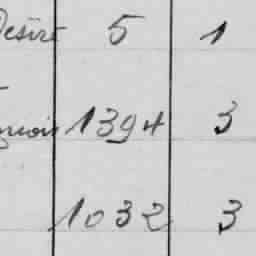 Désiré 5 1
1394 3
1032 3